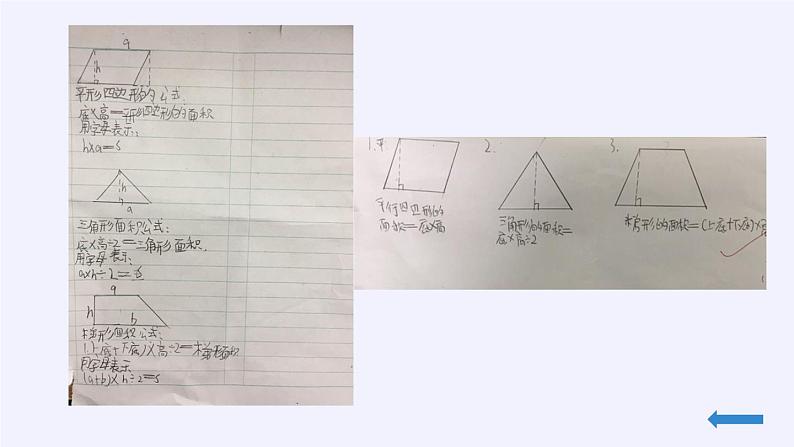 a
h
平形四边形的公式:
底×高=平形四边形的面积
用字母表示:
h×a=S
h
a
三角形面积公式:
底×高÷2=三角形面积.
用字母表示:
a×h÷2=S
a
h
b
梯形面积公式:
(上底+下底)×高÷2=梯形面积
用字母表示
(a+b)×h÷2=S
1.平
平行四边形的
面积=底×高
2.
三角形的面积=
底×高÷2
3.
梯形的面积=(上底+下底)×高